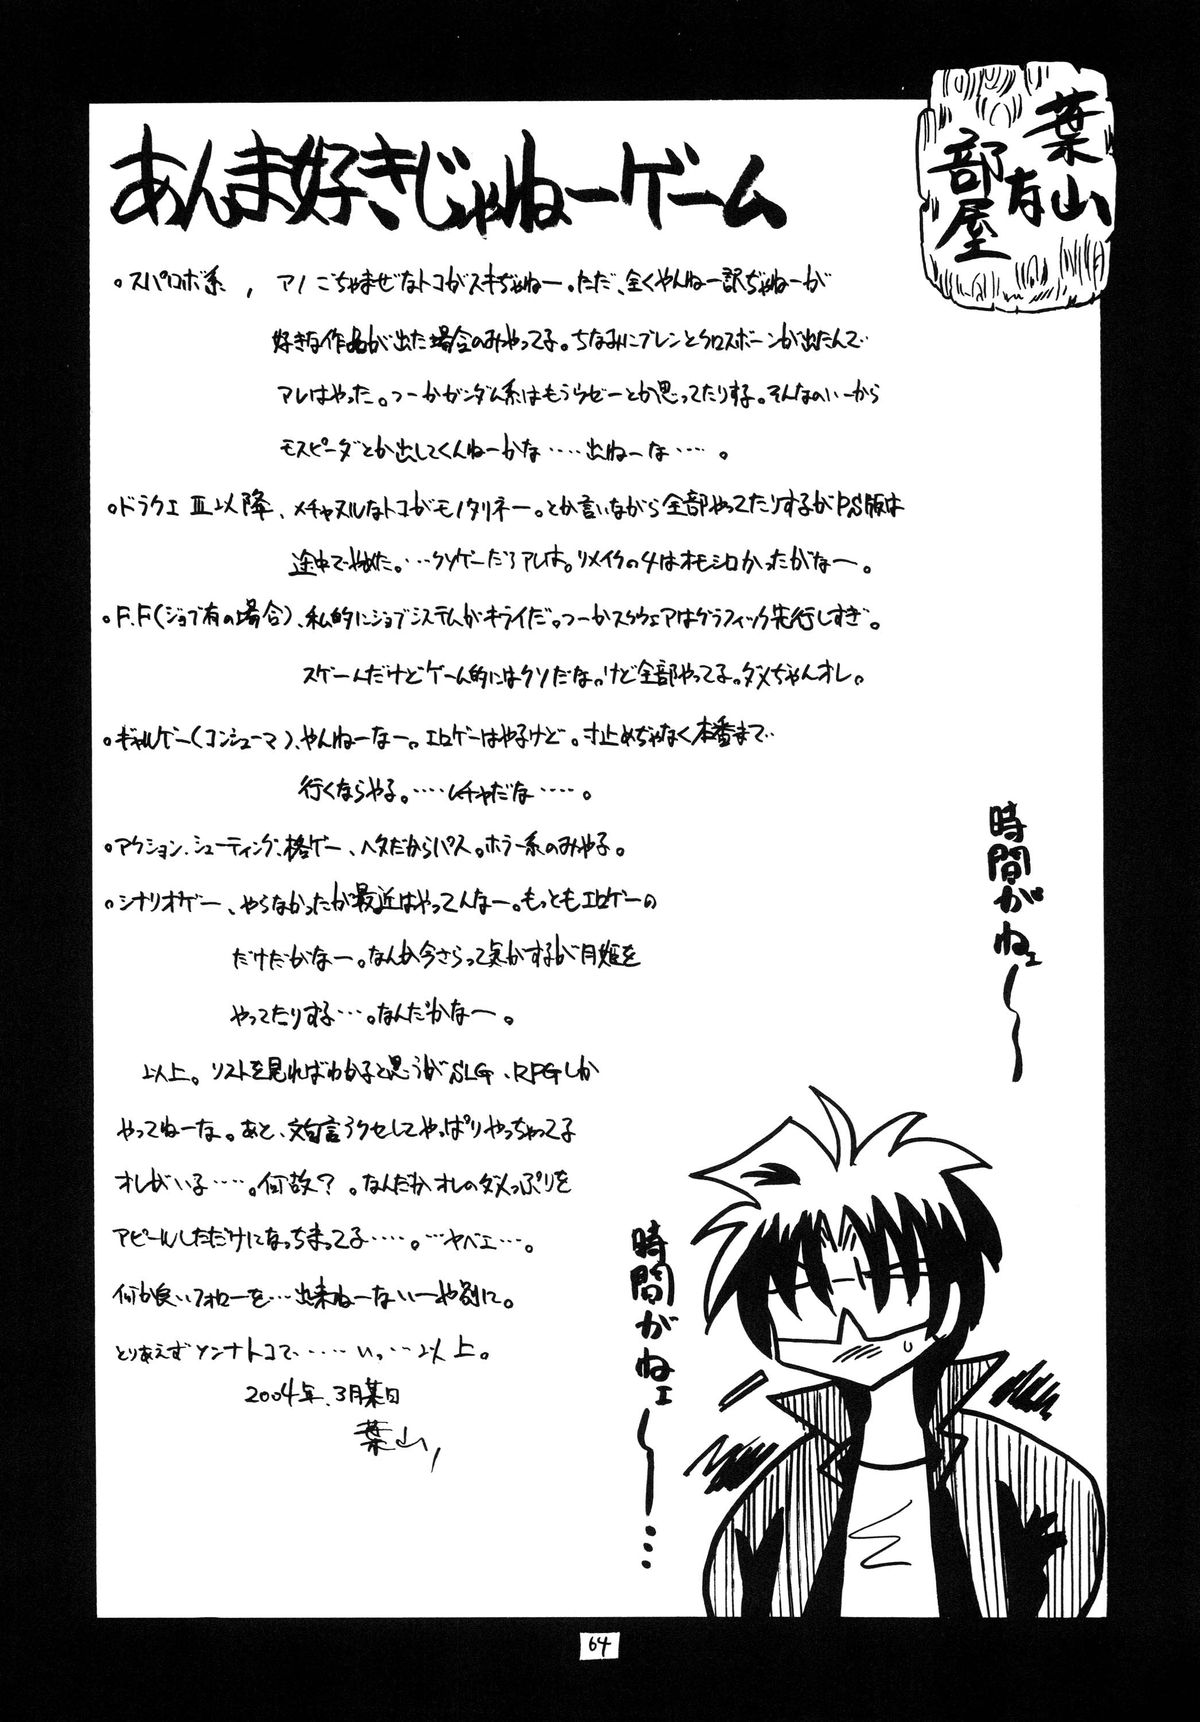 葉山
有
部屋
あんま好きじゃねーゲーム
。スパロボ系、アノごちゃまぜなトコがスキぢゃねー。ただ、全くやんねー訳ぢゃねーが
好きな作品が出た場合のみやってる。ちなみにブレンとクロスボーンが出たんで
アレはやった。つーかガンダム系はもうウゼーとか思ってたりする。そんなのいーから
モスピーダとか出してくんねーかな‥‥出ねーな‥‥。
。ドラクエⅢ以降、メチャヌルなトコがモノタリネー。とか言いながら全部やってたりするがPS版は
途中でやめた。‥‥クソゲーだろアレは。リメイクの4はオモシロかったがなー。
。F.F(ジョブ有の場合)、私的にジョブシステムがキライだ。つーかスクウェアはグラフィック先行しすぎ。
スゲーんだけどゲーム的にはクソだな。けど全部やってる。ダメぢゃんオレ。
。ギャルゲー(コンシューマ)、やんねーなー。エロゲーはやるけど。寸止めぢゃなく本番まで
行くならやる。‥‥ムチャだな‥‥。
。アクション、シューティング、格ゲー、ヘタだからパス。ホラー系のみやる。
。シナリオゲー、やらなかったが最近はやってんなー。もっともエロゲーの
だけだがなー。なんか今さらって気がするが月姫を
やってたりする‥‥。なんだかなー。
以上。リストを見ればわかると思うがSLG、RPGしか
やってねーな。あと、文句言うクセしてやっぱりやっちゃってる
オレがいる‥‥。何故?。なんだかオレのダメっぷりを
アピールしただけになっちまってる‥‥。‥‥ヤベェ‥‥。
何か良いフォローを‥‥出来ねーないーや別に。
とりあえずソンナトコで‥‥‥いっ‥‥以上。
2004年.3月某日
葉山
時間がねェ〜〜
時間がねェ〜〜…
64